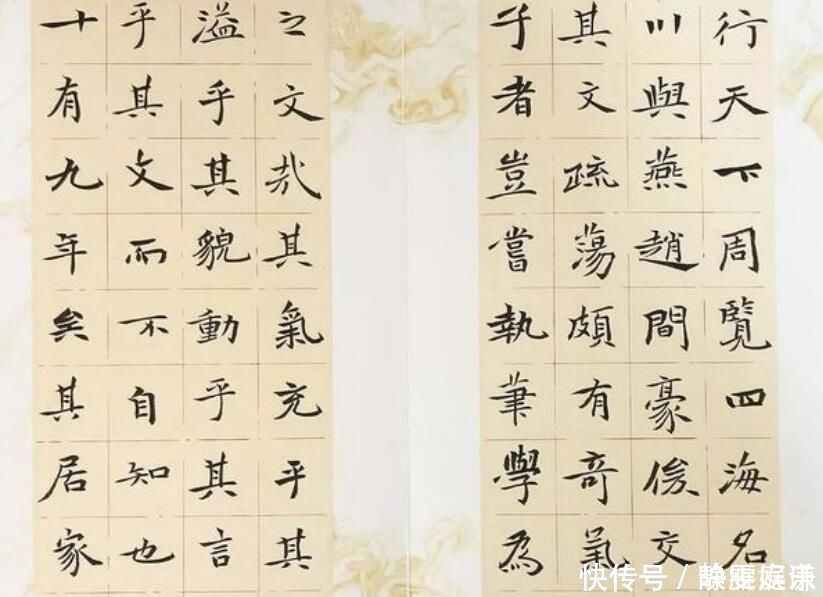 行天下周覽四海名
川與燕趙間豪俊交
其文疏蕩頗有奇氣
子者豈嘗執筆學為
之文哉其氣充乎其
溢乎其貌動乎其言
乎其文而不自知也
十有九年矣其居家
快传号 /